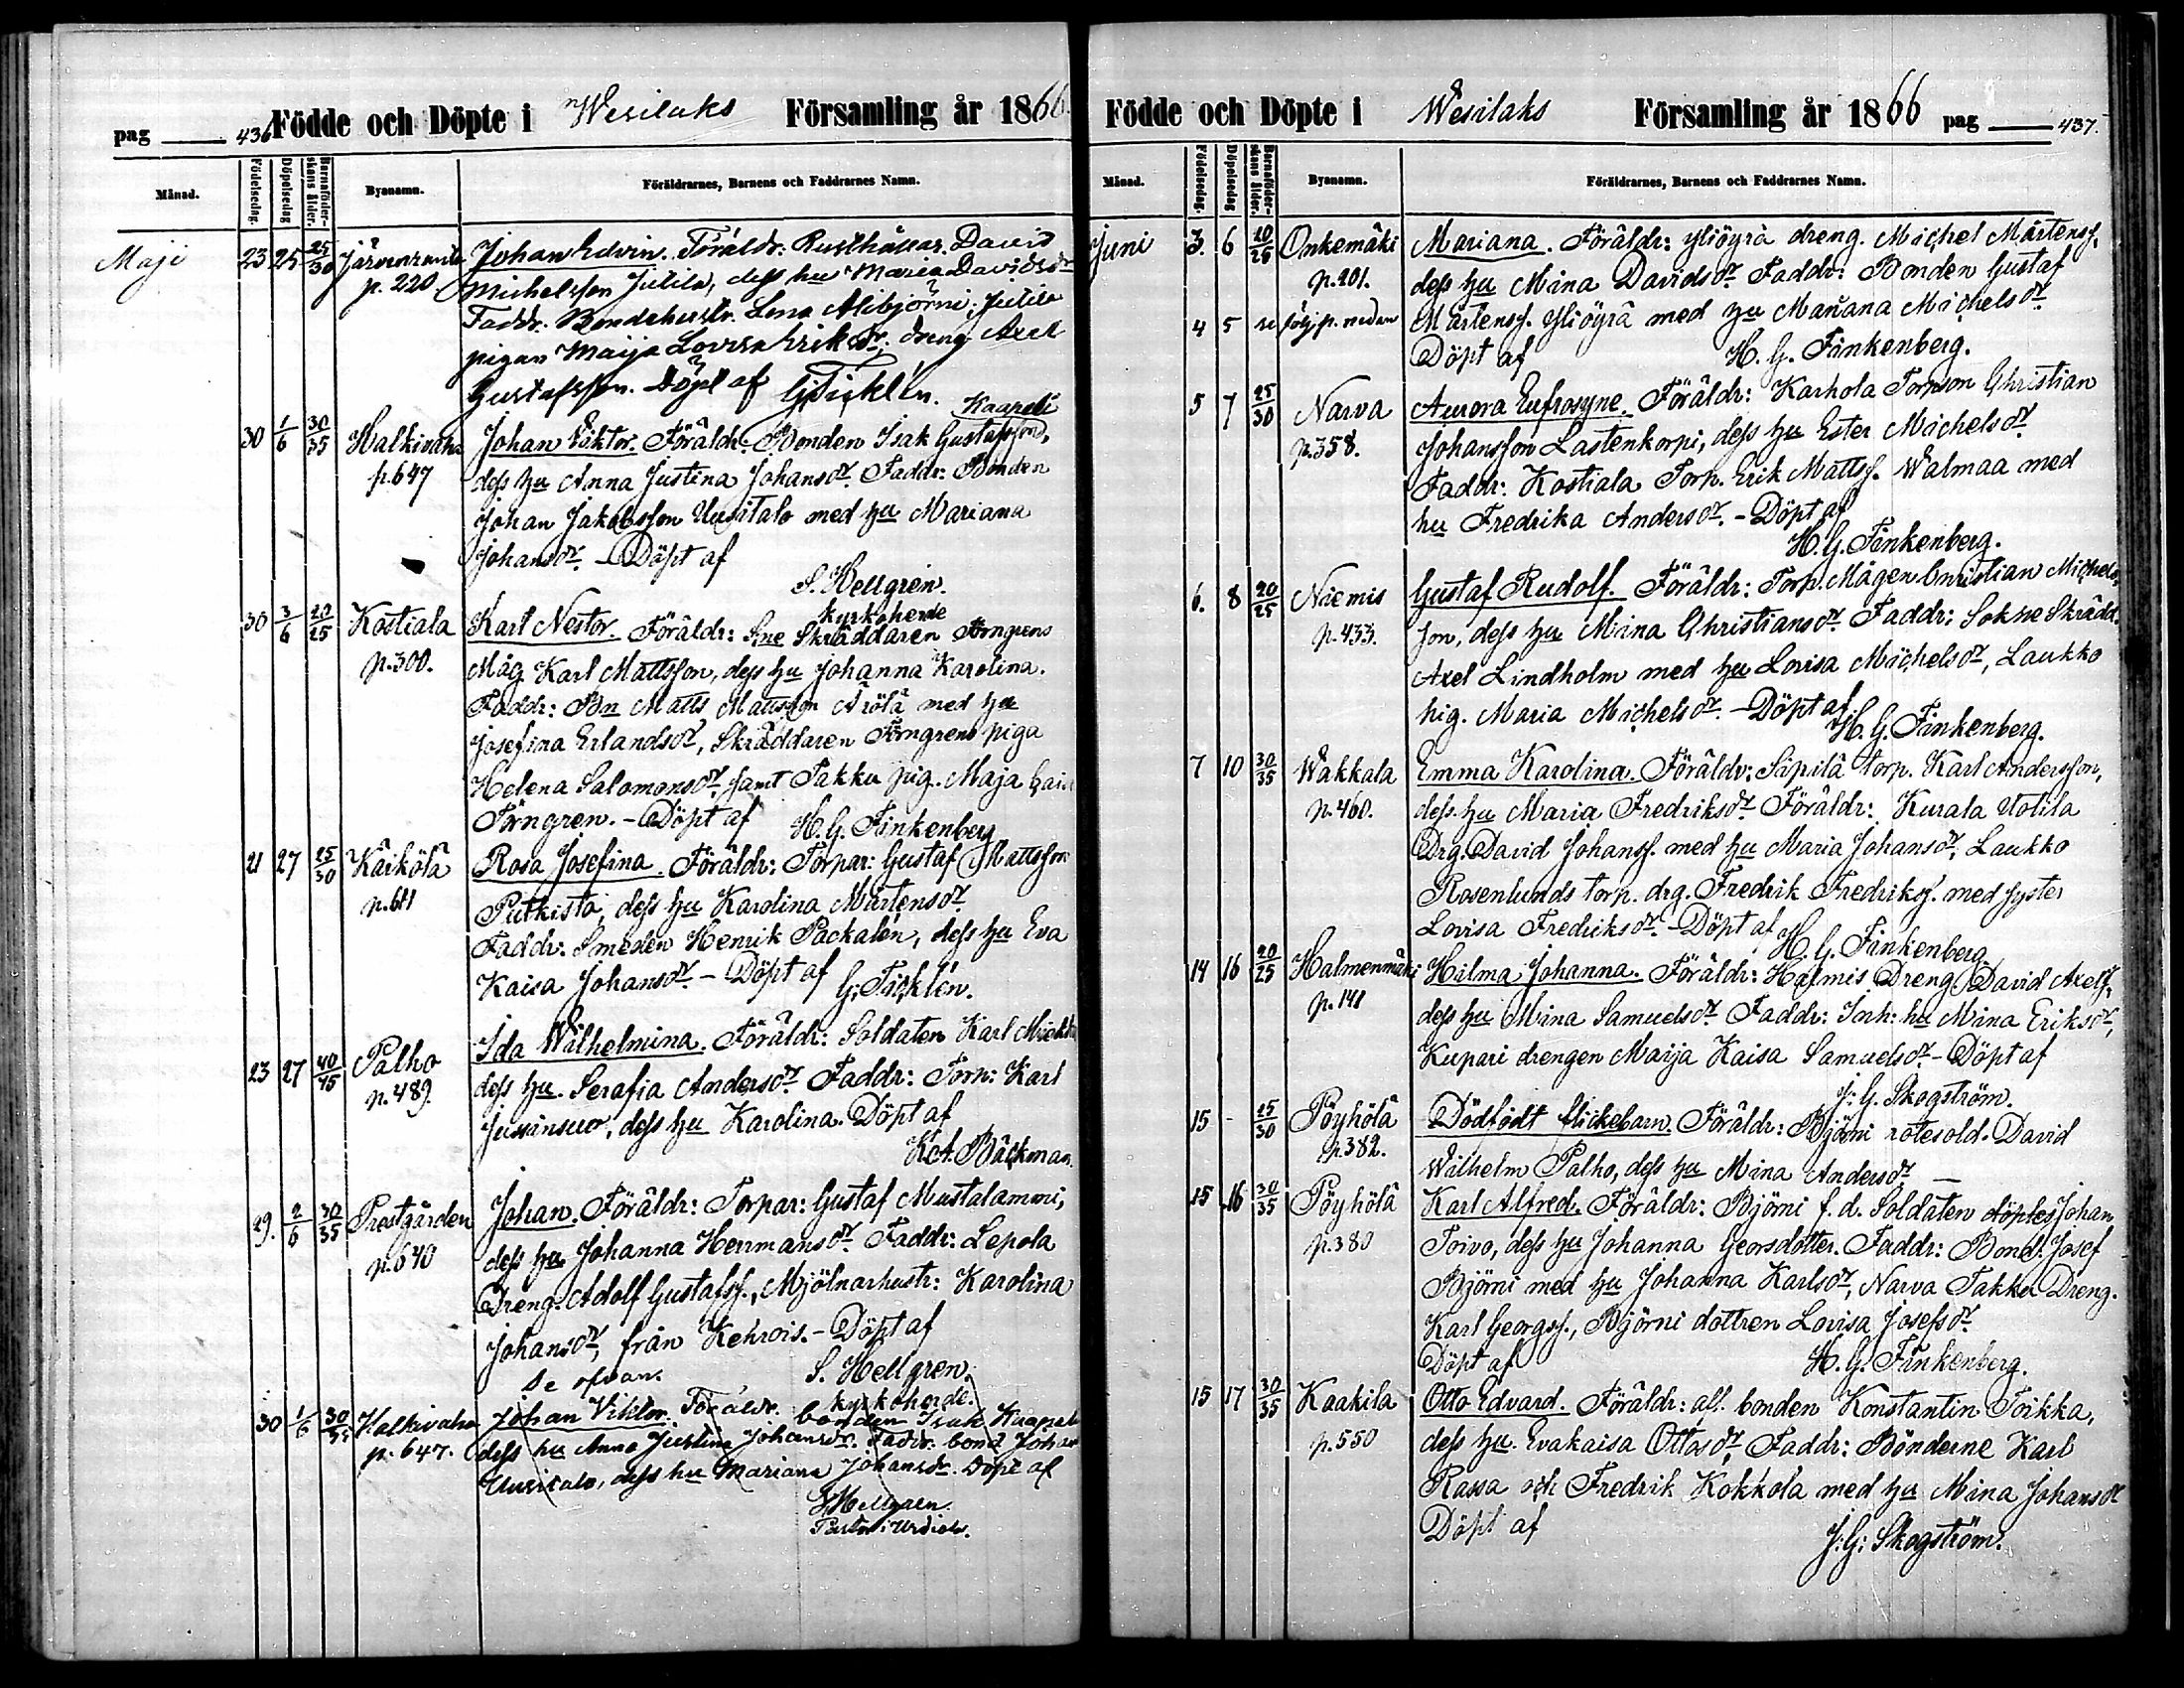 pag 436 Födde och Döpte i Wesilaks Församling år 1866.
Månad. Födelsedag. Döpelsedag Barnaföderskans ålder. Byanamn. Föräldrarnes, Barnens och Faddrarnes Namn.
Maji 23 25 25/30 Järvenranta Johan Edvin. Föräldr: Rusthållar. David
p. 220 Michelsson Jutila, dess hu Maria Davidsdr
Faddr. Bondehustr. Lena Alibjörni, Jutila
pigan Maija Lovisa Eriksdr, dreng Axel
Gustafsson. Döpt af G. Ticklén.
Kaapeli
30 1/6 30/35 Halkivaha Johan Viktor. Föräldr: Bonden Isak Gustafsson,
p. 647 dess hu Anna Justina Johansdr. Faddr: Bonden
Johan Jakobsson Uusitalo med hu Mariana
Johansdr. - Döpt af
S. Hellgren.
kyrkoherde
30 3/6 20/25 Kostiala Karl Nestor. Föräldr: Sne Skräddaren Törngrens
p. 300. Måg Karl Mattsson, dess hu Johanna Karolina.
Faddr: Bn Matts Mattsson Arölä med hu
Josefina Erlandsdr, Skräddaren Törngrens piga
Helena Salomonsdr, samt Takku pig. Maja
Törngren. - Döpt af H. G. Finkenberg
21 27 25/30 Kärkölä Rosa Josefina. Föräldr: Torpar: Gustaf Mattsson
p. 611 Putkisto, dess hu Karolina Mårtensdr.
Faddr: Smeden Henrik Packalén, dess hu Eva
Kaisa Johansdr. - Döpt af G. Ticklén.
23 27 40/45 Palho Ida Wilhelmina. Föräldr: Soldaten Karl
p. 489. dess hu. Serafia Andersdr. Faddr: Torp: Karl
Jussinsuo, dess hu Karolina. Döpt af
K. A. Bäckman.
29. 2/6 30/35 Prestgården Johan. Föräldr: Torpar: Gustaf Mustalammi,
p. 640 dess hu Johanna Hermansdr. Faddr: Lepola
Dreng. Adolf Gustafss., Mjölnarhustr: Karolina
Johansdr, från Kehrois. - Döpt af
Se ofvan. S. Hellgren.
kyrkoherde.
30 1/6 30/35 Halkivaha Johan Viktor. Föräldr. bonden Isak Kaapeli
p. 647. dess hu Anna Justina Johansdr. Faddr. bond Johan
Uusitalo, dess hu Mariana Johansdr. Döpt af
S. Hellgren.
Pastor i Urdiala.
Födde och Döpte i Wesilaks Församling år 1866 pag 437.
Månad. Födelsedag. Döpelsedag Barnaföderskans ålder. Byanamn. Föräldrarnes, Barnens och Faddrarnes Namn.
Juni 3. 6 20/25 Onkemäki Mariana. Föräldr: Yliöyrä dreng. Michel Mårtenss.
p. 201. dess hu Mina Davidsdr. Faddr: Bonden Gustaf
4 5 se följ. p. nedan Mårtenss. Yliöyrä med hu Mariana Michelsdr.
Döpt af H. G. Finkenberg.
5 7 25/30 Narva Aurora Eufrosyne. Föräldr: Karhola Torpson Christian
p. 358. Johansson Lastenkorpi, dess hu Ester Michelsdr.
Faddr: Kostiala Torp. Erik Mattss. Walmaa med
hu Fredrika Andersdr. - Döpt af
H. G. Finkenberg.
6. 8 20/25 Niemis Gustaf Rudolf. Föräldr: Torp. Mågen Christian Michels-
p. 433. son, dess hu Mina Christiansdr. Faddr: Sokne Skrädd.
Axel Lindholm med hu Lovisa Michelsdr, Laukko
pig. Maria Michelsdr. - Döpt af
H. G. Finkenberg.
7 10 30/35 Wakkala Emma Karolina. Föräldr: Säpilä torp. Karl Andersson,
p. 460. dess hu Maria Fredriksdr. Föräldr: Kurala Uotila
Drg. David Johanss. med hu Maria Johansdr, Laukko
Rosenlunds torp. drg. Fredrik Fredrikss. med syster
Lovisa Fredriksdr. - Döpt af H. G. Finkenberg.
14 16 20/25 Halmenmäki Hilma Johanna. Föräldr: Halmis Dreng David Axelss.
p. 141 dess hu Mina Samuelsdr. Faddr: Inh: hu Mina Eriksdr,
Kupari drengen Maija Kaisa Samuelsdr - Döpt af
J: G. Skogström.
15 - 25/30 Pöyhölä Dödfödt flickebarn. Föräldr: Björni rotesold. David
p. 382. Wilhelm Palho, dess hu Mina Andersdr -
15 16 30/35 Pöyhölä Karl Alfred. Föräldr: Björni f. d. Soldaten döptes Johan
p. 380 Toivo, dess hu Johanna Georsdotter. Faddr: Bond. Josef
Björni med hu Johanna Karlsdr, Narva Takku Dreng.
Karl Georgss., Björni dottren Lovisa Josefsdr.
Döpt af H. G. Finkenberg.
15 17 30/35 Kaakila Otto Edvard. Föräldr: afl. bonden Konstantin Toikka,
p. 550 dess hu. Evakaisa Ottosdr, Faddr: Bönderne Karl
Rassa och Fredrik Kokkola med hu Mina Johansdr
Döpt af J: G: Skogström.